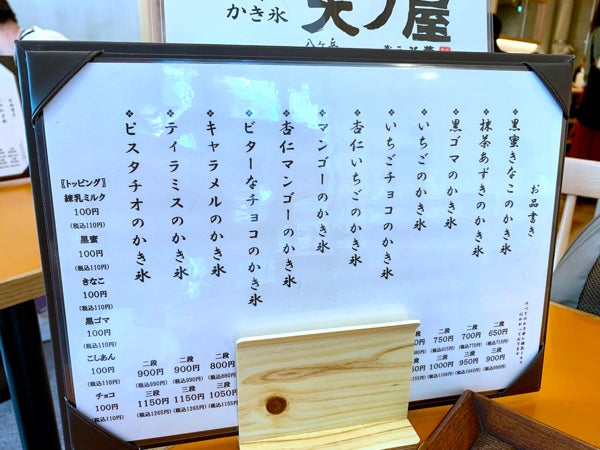 かき氷
八ヶ岳
お品書き
❖黒蜜きなこのかき氷
❖抹茶あずきのかき氷
❖黒ゴマのかき氷
❖いちごのかき氷
❖いちごチョコのかき氷
❖杏仁いちごのかき氷
❖マンゴーのかき氷
❖杏仁マンゴーのかき氷
❖ビターなチョコのかき氷
❖キャラメルのかき氷
❖ティラミスのかき氷
❖ピスタチオのかき氷
二段
650円
(税込715円)
三段
900円
(税込990円)
二段
700円
(税込770円)
三段
950円
(税込1045円)
二段
750円
(税込825円)
三段
1000円
(税込1100円)
二段
800円
(税込880円)
三段
1050円
(税込1155円)
二段
900円
(税込990円)
三段
1150円
(税込1265円)
二段
900円
(税込990円)
三段
1150円
(税込1265円)
〖トッピング〗
練乳ミルク
100円
(税込110円)
黒蜜
100円
(税込110円)
きなこ
100円
(税込110円)
黒ゴマ
100円
(税込110円)
こしあん
100円
(税込110円)
チョコ
100円
(税込110円)